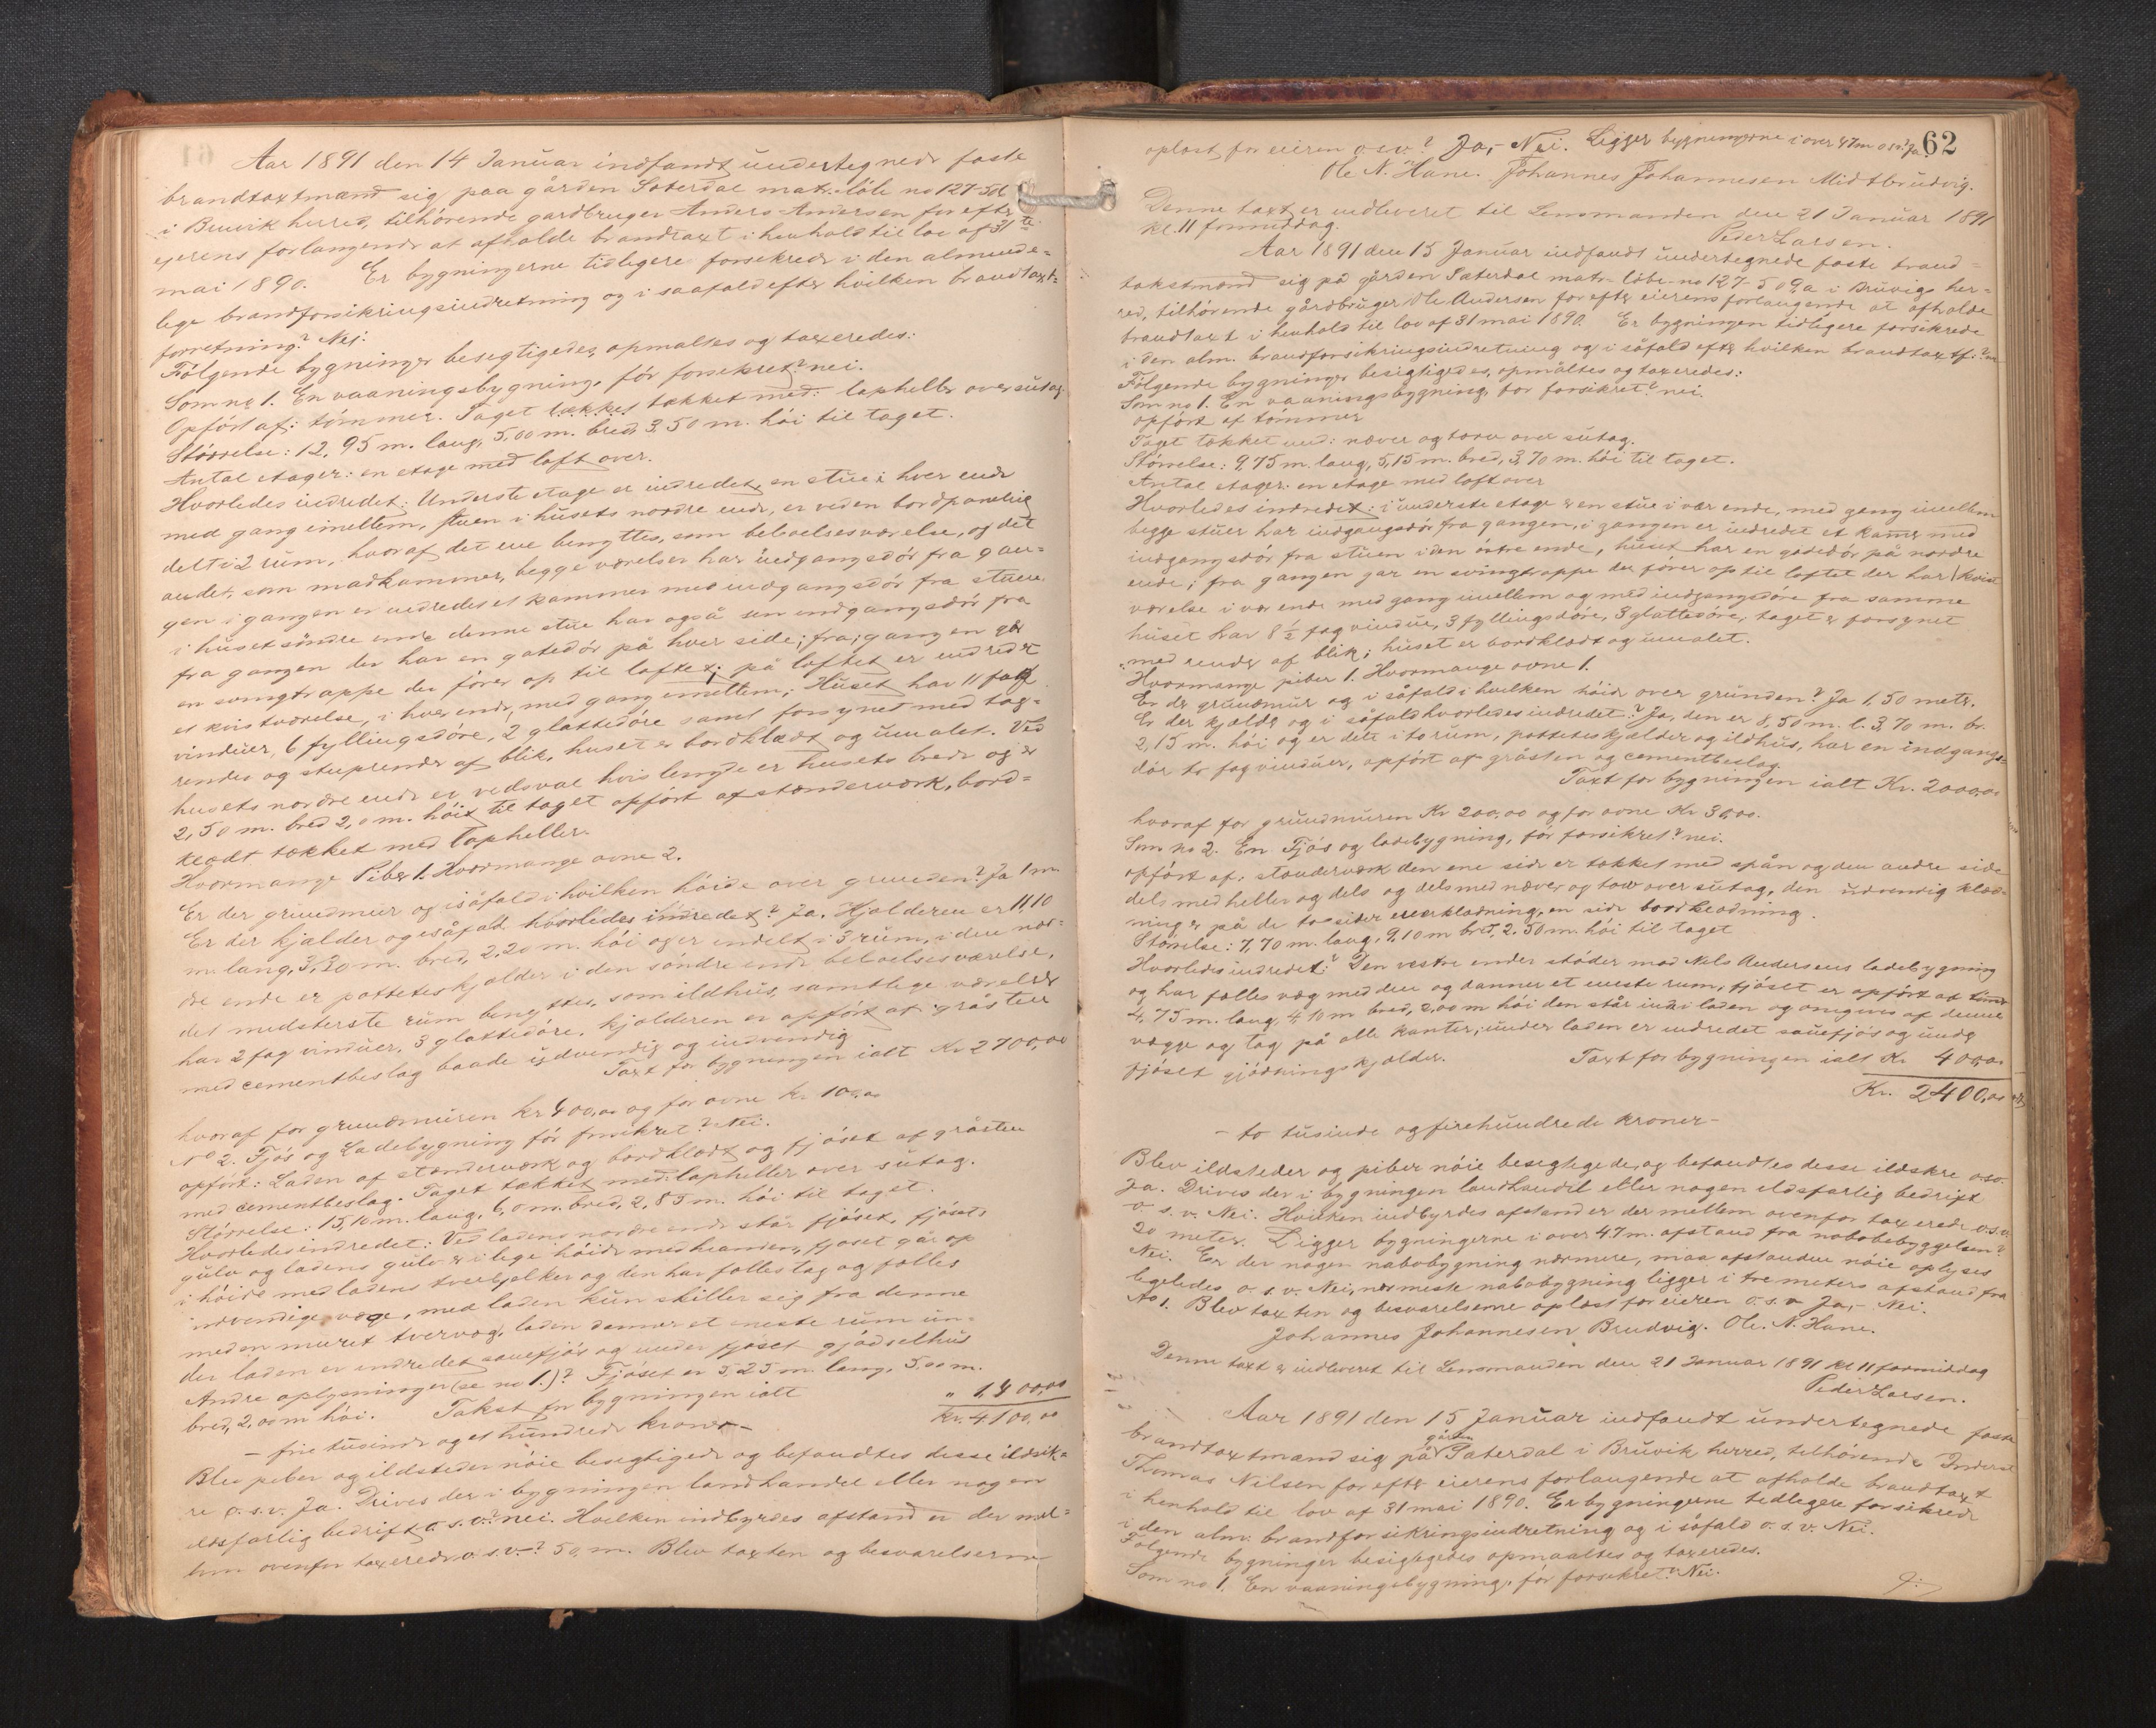 Aar 1891 den 14 Januar indfandt undertegnede faste
brandtaxtmænd sig paa gården Sæterdal matr. löbe no 127-50
i Bruvik herred, tilhørende gardbruger Anders Andersen for efter
ejerens forlangende at afholde brandtaxt i henhold til lov af 31te
mai 1890. Er bygningerne tidligere forsekrede i den alminde-
lege brandforsikringsindretning og i saafald efter hvilken brandtaxt-
forretning? Nei.
Følgende bygninger besegtigedes, opmaltes og taxeredes:
Som no 1. En vaaningsbygning, för forsekret? nei.
Opfört af: tömmer. Taget tækket med: lapheller over sutag.
Störrelse: 12,95 m. lang, 5,00 m. bred, 3,50 m. höi til taget.
Antal etager: en etage med loft over.
Hvorledes indredet: Underste etage er indredet, en stue i hver ende
med gang imellem, stuen i husets nordre ende, er veden bordpaneling
delt i 2 rum, hvoraf det ene benyttes, som beboelsesværelse, og det
andet, som madkammer, begge værelser har indgangsdör fra gan-
gen i gangen er indredes et kammer med indgangsdör fra stuen
i huset söndre ende denne stue har også sin indgangsdör fra
fra gangen der har en gatedör på hver side; fra gangen går
en svingtrappe der förer op til loftet; på loftet er indredet
et kvistværelse, i hver ende, med gang imellem; Huset har 11 fag
vinduer, 6 fyllingsdöre, 2 glattedöre samt forsynet med tag-
render og stuprender af blik, huset er bordklædt og umalet. Ved
husets nordre ende er vedsval hvis lengde er husets brede og er
2,50 m. bred 2,0 m. höit til taget opfört af stænderværk, bord-
klædt tækket med lapheller.
Hvormange Piber 1. Hvormange ovne 2.
Er der grundmur og isåfald i hvilken höide over grunden? Ja 1 m
Er der kjælder og isåfald hvorledes indredet? Ja. Kjælderen er 11,10
m. lang, 3,30 m. bred, 2,20 m. höi og er indelt i 3 rum, i den nor-
dre ende er potteteskjælder i den söndre ende beboelsesværelse,
det medsterste rum benyttes, som ildhus, samtlege værelser
har 2 fag vinduer, 3 glattedöre, kjælderen er opfört af gråsten
med cementbeslag baade udvendig og indvendig
Taxt for bygningen ialt Kr 2700,00
hvoraf for grundmuren kr 400,00 og for ovne kr 100,00
No 2. Fjös og Ladebygning för forsikret? Nei.
opfört: Laden af stænderværk og bordklædt og fjöset af gråsten
med cementbeslag. Taget tækket med lapheller over sutag.
Störrelse: 15,10 m. lang, 6,0 m. bred, 2,85 m. höi til taget.
Hvorledes indredet: Ved ladens nordre ende står fjöset, fjösets
gulv og ladens gulv er i lege höide med heanden, fjöset går op
i höide med ladens tverbjelker og den har fælles tag og fælles
indvendige væge, med laden kun skiller sig fra denne
med en muret tvervæg, laden danner et eneste rum un-
der laden er indredet sauefjös og under fjöset gjödselhus
Andre oplysninger (se no 1.)? Fjöset er 5,25 m. lang, 5,00 m.
bred, 2,00 m höi. Takst for bygningen ialt " 1,400,00
Kr. 4100,00
- fire tusinde og et hundrede kroner -
Blev peber og ildsteder nöie besegtigede og befandtes desse ildsik-
re o.s.v. Ja. Drives der i bygningen landhandel eller nogen
eldsfarlig bedrift o.s.v.? nei. Hvelken indbyrdes afstand er der mel-
lem ovenfor taxerede o.s.v.-? 50, m. Blev taxten og besvarelserne
62
oplæst for eieren o.s.v.? Ja,- Nei. Ligger bygningerne i over 47 m o.s.v. Ja
Ole N. Hane. Johannes Johannesen Midtbrudvig.
Denne taxt er indleveret til Lensmanden den 21 Januar 1891
kl. 11 formiddag. Peder Larsen.
Aar 1891 den 15 Januar indfandt undertegnede faste brand-
takstmænd sig på gården Sæterdal matr. löbe-no 127-509a i Bruvigs her-
red, tilhörende gårdbruger Ole Andersen for efter eierens forlangende at afholde
brandtaxt i henhold til lov af 31 mai 1890. Er bygningen tidligere forsikrede
i den alm. brandforsikringsindretning og i såfald efter hvilken brandtaxtf:?
Fölgende bygninger besigtigedes, opmåltes og taxeredes:
Som no 1. En vaaningsbygning, for forsikret? nei.
opfört af tömmer
Taget tækket med: næver og torv over sutag.
Störrelse: 9,75 m. lang, 5,15 m. bred, 3,70 m. höi til taget.
Antal etager: en etage med loft over
Hvorledes indredet: i underste etage er en stue i vær ende, med gang imellem
begge stuer har indgangsdör fra gangen, i gangen er indredet et kamer med
indgangsdör fra stuen i den östre ende, huset har en gatedör på nordre
ende; fra gangen går en svingtrappe der förer op til loftet der har 1 kvist
værelse i vær ende med gang imellem og med indgangsdöre fra samme
huset har 8 1/2 fag vindue, 3 fyllingsdöre, 3 glattedöre, taget er forsynet
med render af blik; huset er bordklædt og umalet.
Hvormange piber 1. Hvormange ovne 1.
Er der grundmur og i såfald i hvilken höide over grunden? Ja 1,50 metr.
Er der kjælder og i såfald hvorledes indredet? Ja, den er 8,50 m. l. 3,70 m. br.
2,15 m. höi og er delt i to rum, potteteskjælder og ildhus, har en indgangs-
dör to fag vinduer, opfört af gråsten og cementbeslag.
Taxt for bygningen ialt Kr. 2000,00
hvoraf for grundmuren Kr 200,00 og for ovne Kr 30,00.
Som no 2. En Fjös og ladebygning, för forsikret? nei.
opfört af: stænderværk den ene side er tækket med spån og den andre side
dels med heller og dels og dels med næver og torv over sutag, den udvendig klæd-
ning er på de to sider klædning, en side bordklædning.
Störrelse: 7,70 m. lang, 9,10 m bred, 2,50 m. höi til taget
Hvorledes indredet? Den vestre ender stöder mod Nels Andersens ladebygning
og har fælles væg med den og danner et eneste rum, fjöset er opfört af tömr
4,75 m. lang, 4,10 m bred, 2,00 m höi den står indi laden og omgives af denne
vægge og tag på alle kanter; under laden er indredet sauefjös og under
fjöset gjödningskjælder. Taxt for bygningen ialt Kr 400,00
Kr. 2400,00
- to tusinde og firehundrede kroner -
Blev ildsteder og piber nöie besegtegede, og befandtes desse ildskre o.s.v.
Ja. Drives der i bygningen landhandel eller nogen eldsfarlig bedrift
o.s.v. Nei. Hvilken indbyrdes afstand er der mellem ovenfor taxerede o.s.v.
20 meter. Ligger bygningerne i over 47 m. afstand fra nabobebyggelsen?
Nei. Er der nogen nabobygning nærmere, maa afstanden nöie oplyses
legeledes o.s.v. Nei, nærmeste nabobygning ligger i tre meters afstand fra
No 1. Blev taxten og besvarelserne oplæst for eieren o.s.v. Ja,- Nei.
Johannes Johannesen Brudvig. Ole. N. Hane.
Denne taxt er indleveret til Lensmanden den 21 Januar 1891 kl 11 formiddag
Peder Larsen.
Aar 1891 den 15 Januar indfandt undertegnede faste
brandtaxtmænd sig på gården Sæterdal i Bruvik herred, telhörende Inderst
Thomas Nilsen for efter eierens forlangende at afholde brandtaxt
i henhold til lov af 31 mai 1890. Er bygningerne tedlegere forsikrede
i den alm. brandforsikringsindretning og i såfald o.s.v. Nei.
Følgende bygninger besigtegedes opmaaltes og taxeredes.
Som no 1. En vaaningsbygning, för forsekret? Nei.